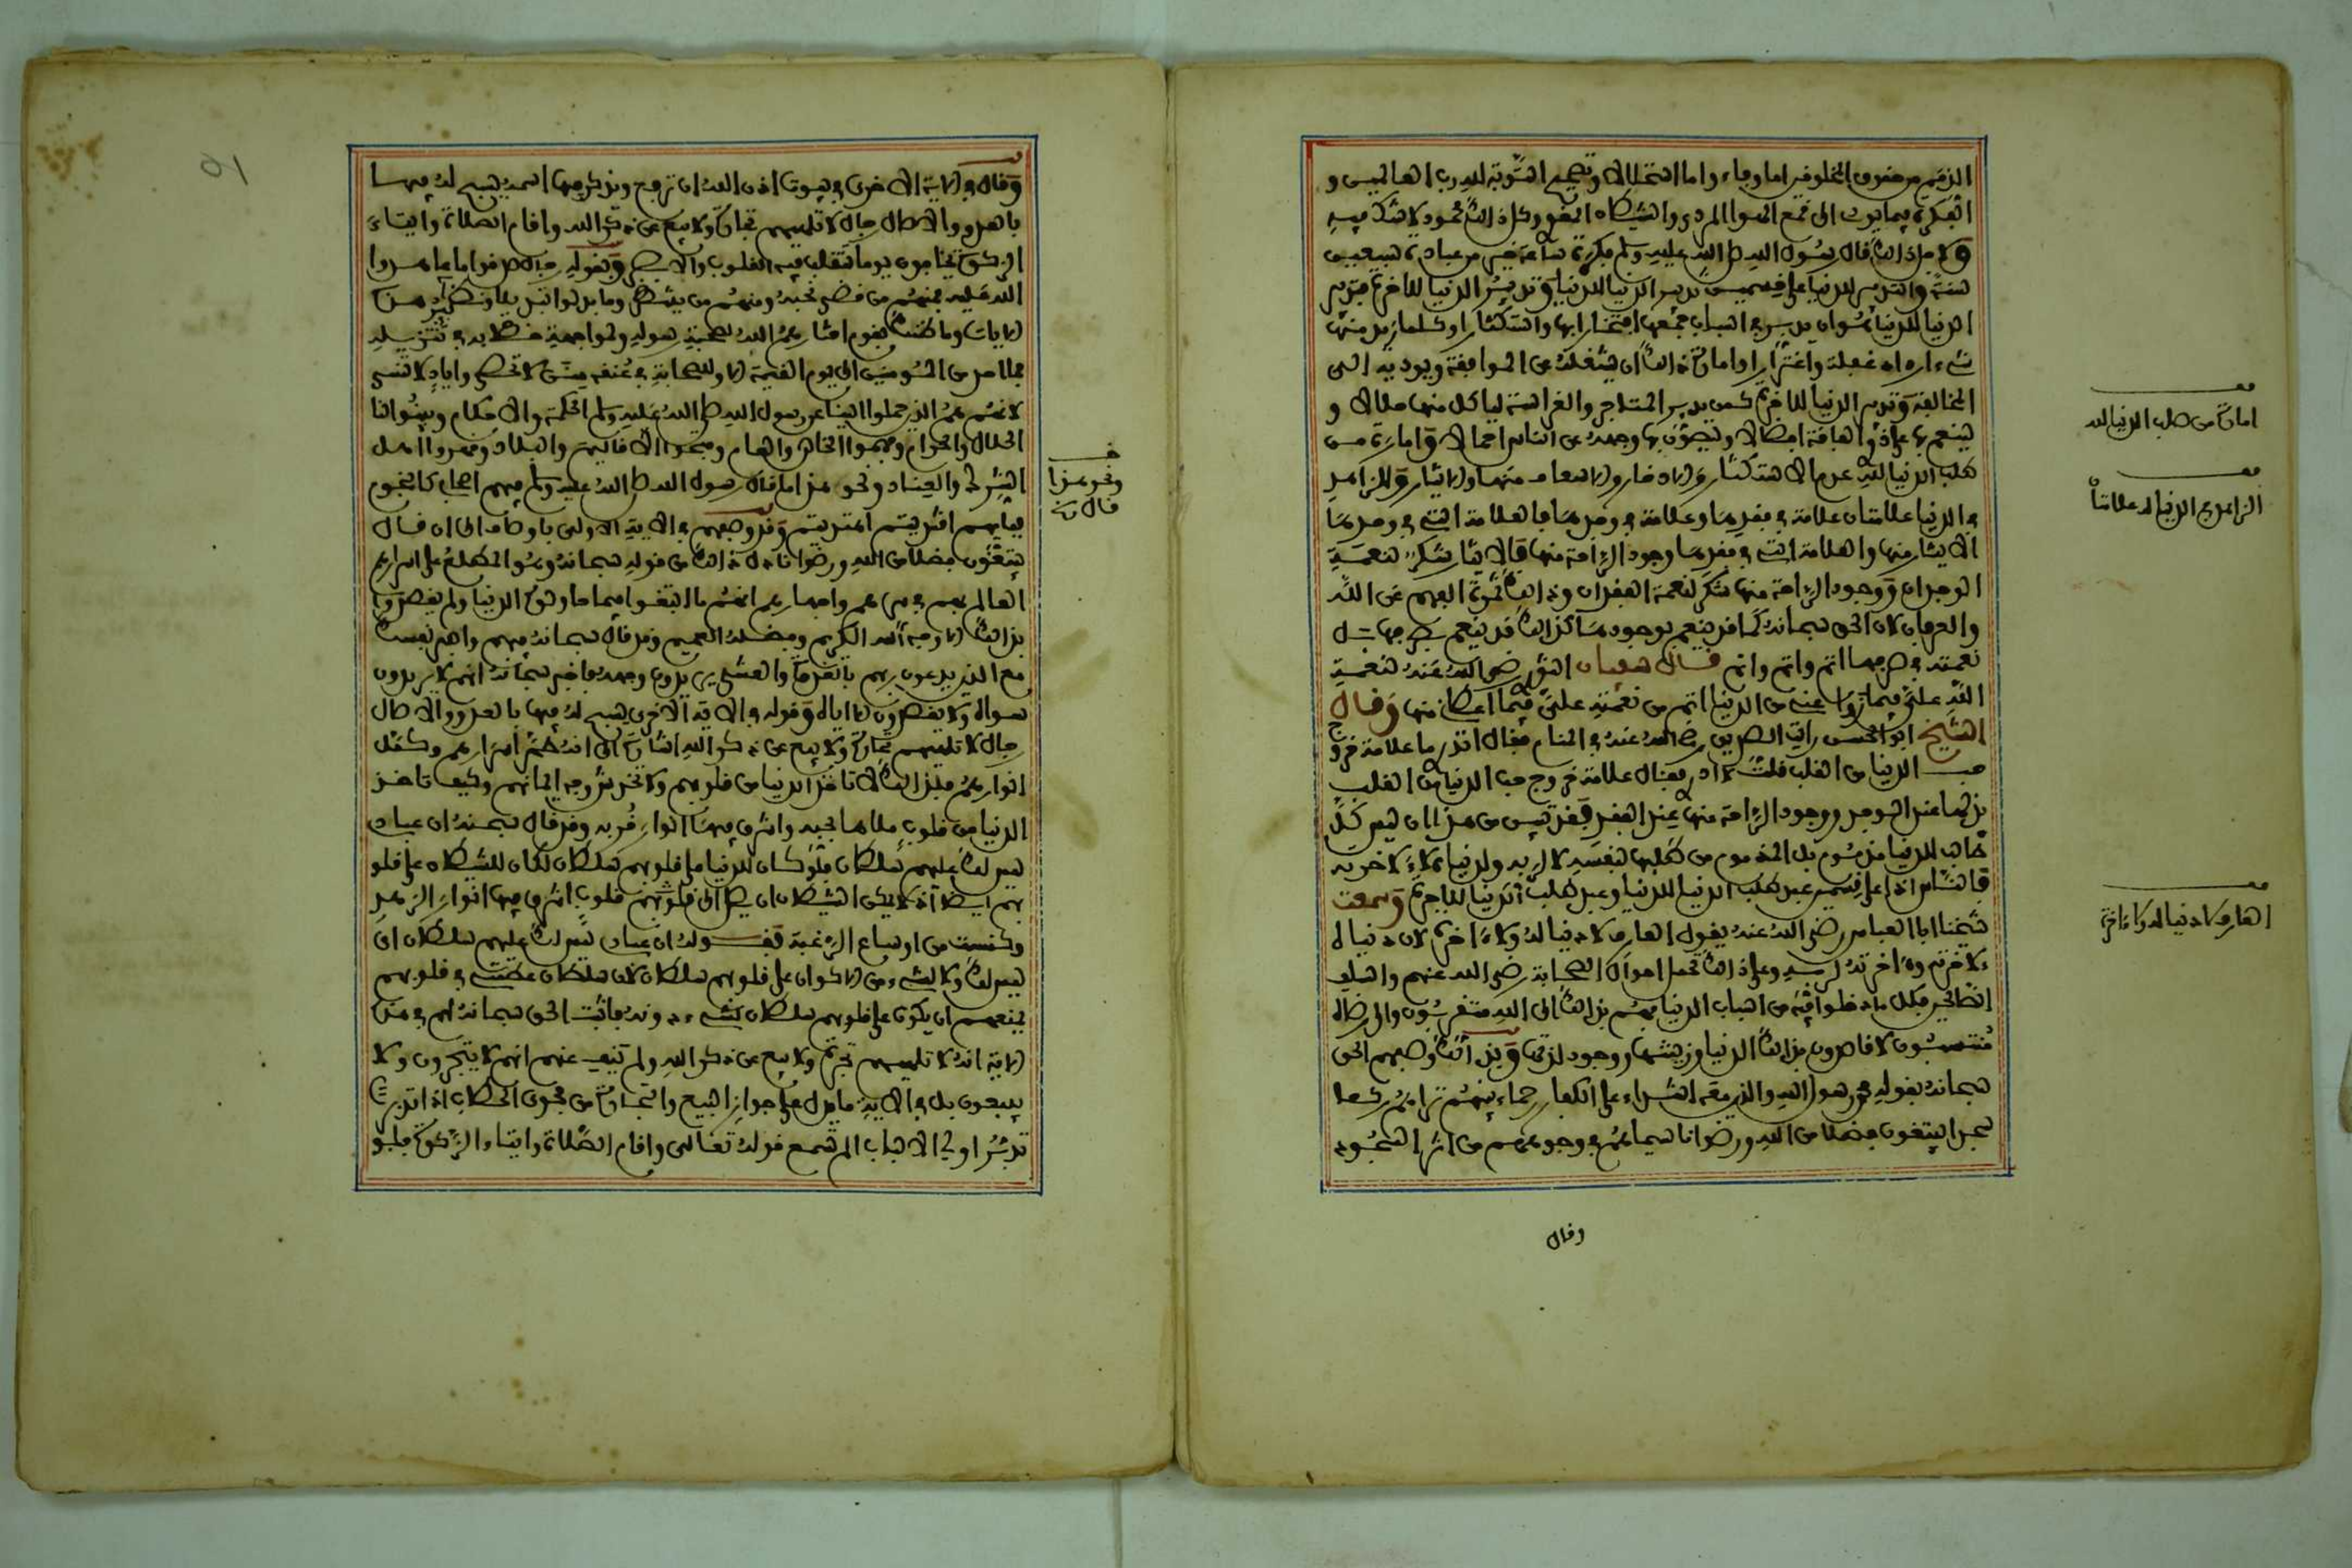 الذمم من حقوق المخلوقين اما وفاء واما استحلالا وتصحيح التوبة لله رب العالمين و
الفكرة فيما يودي الى قمع الهوا المردي والشيطان المغوي وكل ذلك محمود لا شك فيه
ولاجل ذلك قال رسول الله صلى الله عليه وسلم فكرة ساعة خير من عبادة سبعين
سنة والتدبير للدنيا على قسمين تدبير الدنيا للدنيا وتدبير الدنيا للاخرة فتدبير
الدنيا للدنيا هو ان يدبر في اسباب جمعها افتخارا بها واستكثارا وكلما زيد منها
شيء ازداد غفلة واغترارا وامارة ذلك ان يشغله عن الموافقة ويوديه الى
المخالفة وتدبير الدنيا للاخرة كمن يدبر المتاجر والغراسة لياكل منها حلالا و
لينعم بها على ذوي الفاقة افضالا وليصون بها وجهه عن الناس اجمالا وامارة من
طلب الدنيا لله عدم الاستكثار والادخار والاسعاف منها والايثار وللزاهد
في الدنيا علامتان علامة في فقدها وعلامة في وجدها فالعلامة التي في وجدها
الايثار منها والعلامة التي في فقدها وجود الراحة منها فالايثار شكر لنعمة
الوجدان ووجود الراحة منها شكر لنعمة الفقدان وذلك ثمرة الفهم عن الله
والعرفان لان الحق سبحانه كما قد ينعم بوجودها كذلك قد ينعم بصرفها بل
نعمته في صرفها اتم واتم قال سفيان الثوري رضي الله عنه لنعمة
الله علي فيما زواه عني من الدنيا اتم من نعمته علي فيما اعطاني منها وقال
الشيخ ابو الحسن رايت الصديق رضي الله عنه في المنام فقال اتدري ما علامة خروج
حب الدنيا من القلب قلت لا ادري فقال علامة خروج حب الدنيا من القلب
بذلها عند الوجد ووجود الراحة منها عند الفقد فقد تبين من هذا ان ليس كل
طالب للدنيا مذموم بل المذموم من طلبها لنفسه لا لربه ولدنياه لا لاخرته
فالناس اذا على قسمين عبد طلب الدنيا للدنيا وعبد طلب الدنيا للاخرة وسمعت
شيخنا ابا العباس رضي الله عنه يقول العارف لا دنيا له ولا اخرة لان دنياه
لاخرته واخرته لربه وعلى ذلك تحمل احوال الصحابة رضي الله عنهم والسلف
الصالحين فكل ما دخلوا فيه من اسباب الدنيا فهم بذلك الى الله متقربون والى رضاه
متسببون لا قاصدون بذلك الدنيا وزينتها ووجود لذتها وبذلك وصفهم الحق
سبحانه بقوله محمد رسول الله والذين معه اشداء على الكفار رحماء بينهم تراهم ركعا
سجدا يبتغون فضلا من الله ورضوانا سيماهم في وجوههم من اثر السجود
وقال
امارة من طلب الدنيا لله
الزاهد في الدنيا له علامتان
العارف لا دنيا له ولا اخرة
وقال في الاية الاخرى في بيوت اذن الله ان ترفع ويذكر فيها اسمه يسبح له فيها
بالغدو والاصال رجال لا تلهيهم تجارة ولا بيع عن ذكر الله واقام الصلاة وايتاء
الزكوة يخافون يوما تتقلب فيه القلوب والابصر وبقوله رجال صدقوا ما عاهدوا
الله عليه فمنهم من قضى نحبه ومنهم من ينتظر وما بدلوا تبديلا ونظير هذه
الايات وما ظنك بقوم اختارهم الله لصحبة رسوله ولمواجهة خطابه في تنزيله
فما احد من المومنين الى يوم القيمة الا وللصحابة في عنقه منن لا تحصى واياد لا تنسى
لانهم هم الذين حملوا الينا عن رسول الله صلى الله عليه وسلم الحكمة والاحكام وبينوا لنا
الحلال والحرام وفهموا الخاص والعام وفتحوا الاقاليم والبلاد وقهروا اهل
الشرك والعناد ونحو هذا ما قال رسول الله صلى الله عليه وسلم فيهم اصحابي كالنجوم
بايهم اقتديتم اهتديتم وقد وصفهم في الاية الاولى باوصاف الى ان قال
يبتغون فضلا من الله ورضوانا دل ذلك من قوله سبحانه وهو المطلع على اسرارهم
العالم بهم في سرهم واجهارهم انهم ما ابتغوا فيما حاولوه الدنيا ولم يقصدوا
بذلك الا وجه الله الكريم وفضله العميم وقد قال سبحانه فيهم واصبر نفسك
مع الذين يدعون ربهم بالغدوة والعشي يريدون وجهه فاخبر سبحانه انهم لا يريدون
سواه ولا يقصدون الا اياه وقوله في الاية الاخرى يسبح له فيها بالغدو والاصال
رجال لا تلهيهم تجارة ولا بيع عن ذكر الله اشارة الى انه طهر اسرارهم وكمل
انوارهم فلذلك لا تاخذ الدنيا من قلوبهم ولا تخدش وجه ايمانهم وكيف تاخذ
الدنيا من قلوب ملاها بحبه واشرق فيها انوار قربه وقد قال سبحنه ان عبادي
ليس لك عليهم سلطان فلو كان للدنيا على قلوبهم سلطان لكان للشيطان على قلو
بهم ايضا اذ لا يمكن الشيطان ان يصل الى قلوبهم قلوب اشرق فيها انوار الزهد
وكنست من اوساخ الرغبة فقوله ان عبادي ليس لك عليهم سلطان اي
ليس لك ولا لشيء من الاكوان على قلوبهم سلطان لان سلطان عظمتي في قلوبهم
يمنعهم ان يكون على قلوبهم سلطان لشيء دونه فاثبت الحق سبحانه لهم في هذه
الاية انه لا تلهيهم تجرة ولا بيع عن ذكر الله ولم ينف عنهم انهم لا يتجرون ولا
يبيعون بل في الاية ما يدل على جواز البيع والتجارة من فحوى الخطاب اذا تدبرت
تدبر اولي الالباب الم تسمع قوله تعالى واقام الصلاة وايتاء الزكوة فلو
ونحو هذا
قال